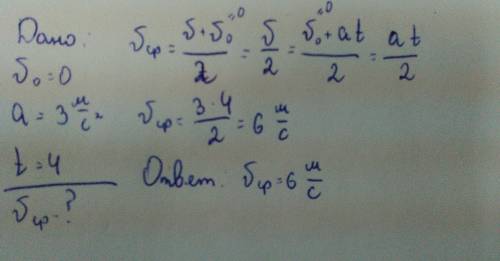 Дано:
υ₀ = 0
a = 3 м/с²
t = 4
υср - ?
υср = (υ + υ₀→0)/2 = υ/2 = (υ₀→0 + at)/2 = at/2
υср = (3·4)/2 = 6 м/с
Ответ: υср = 6 м/с